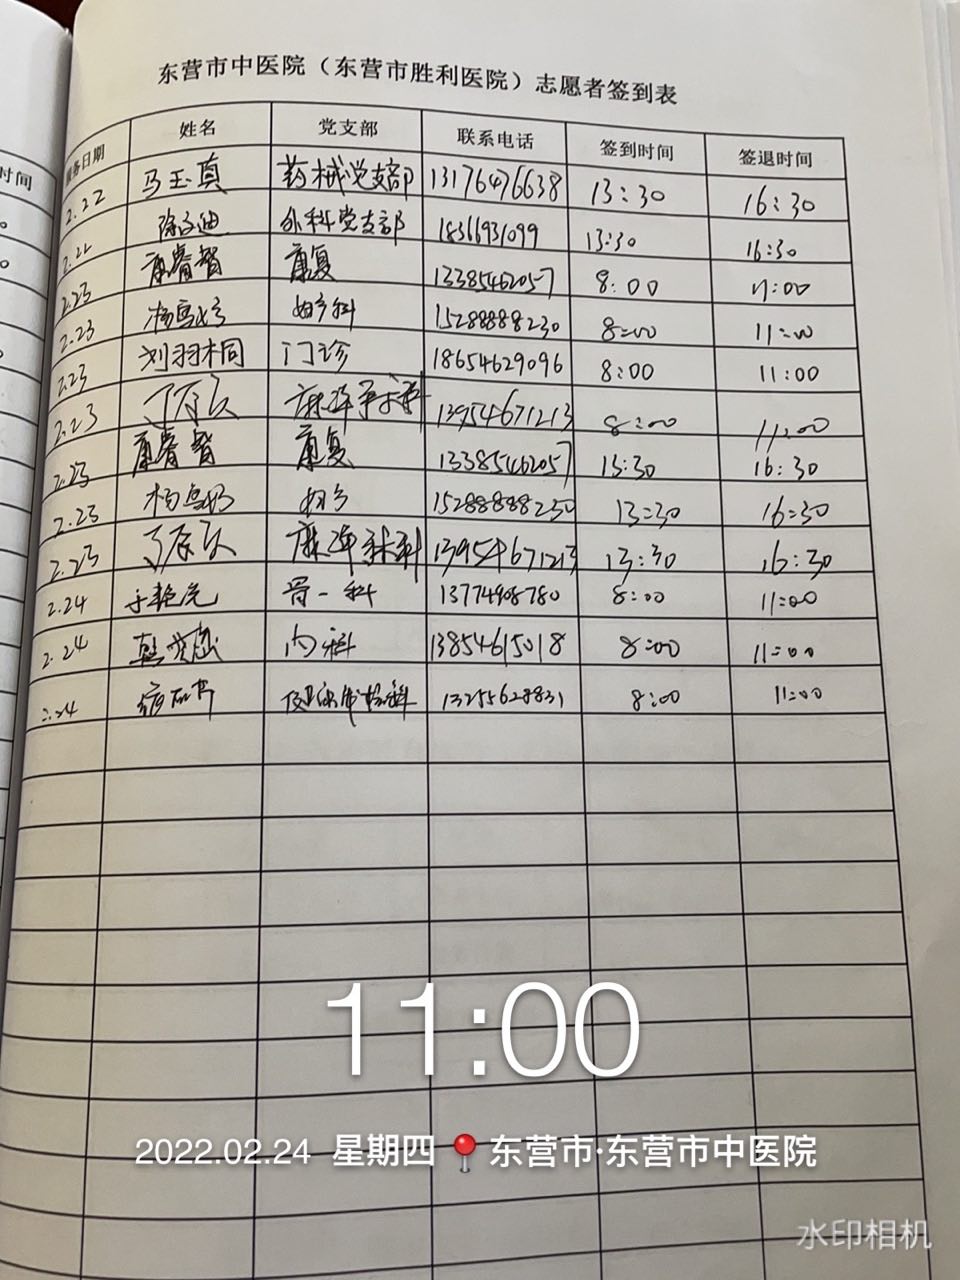 时间
东营市中医院（东营市胜利医院）志愿者签到表
服务日期 姓名 党支部 联系电话 签到时间 签退时间
2.22 马玉真 药械党支部 13176476638 13:30 16:30
2.22 徐文迪 外科党支部 18366931099 13:30 16:30
2.23 康睿智 康复 13385462057 8:00 11:00
2.23 妇产科 15288888230 8:00 11:00
2.23 刘羽桐 门诊 18654629096 8:00 11:00
2.23 麻醉手术科 13954671213 8:00 11:00
2.23 康睿智 康复 13385462057 13:30 16:30
2.23 妇产 15288888230 13:30 16:30
2.23 麻醉术科 13954671213 13:30 16:30
2.24 于艳亮 骨一科 13774908780 8:00 11:00
2.24 韩 内科 13854615018 8:00 11:00
2.24 13255628831 8:00 11:00
11:00
2022.02.24 星期四 东营市·东营市中医院
水印相机